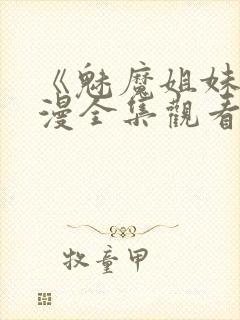 《魅魔姐妹
漫全集觀看
牧童甲